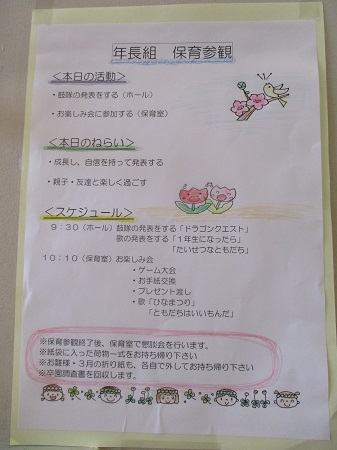 年長組　保育参観
＜本日の活動＞
・鼓隊の発表をする（ホール）
・お楽しみ会に参加する（保育室）
＜本日のねらい＞
・成長し、自信を持って発表する
・親子・友達と楽しく過ごす
＜スケジュール＞
９：３０（ホール）鼓隊の発表をする「ドラゴンクエスト」
歌の発表をする「１年生になったら」
「たいせつなともだち」
１０：１０（保育室）お楽しみ会
・ゲーム大会
・お手紙交換
・プレゼント渡し
・歌「ひなまつり」
「ともだちはいいもんだ」
※保育参観終了後、保育室で懇談会を行います。
※紙袋に入った荷物一式をお持ち帰り下さい
※お雛様・３月の折り紙も、各自で外してお持ち帰り下さい
※卒園調査書を回収します。